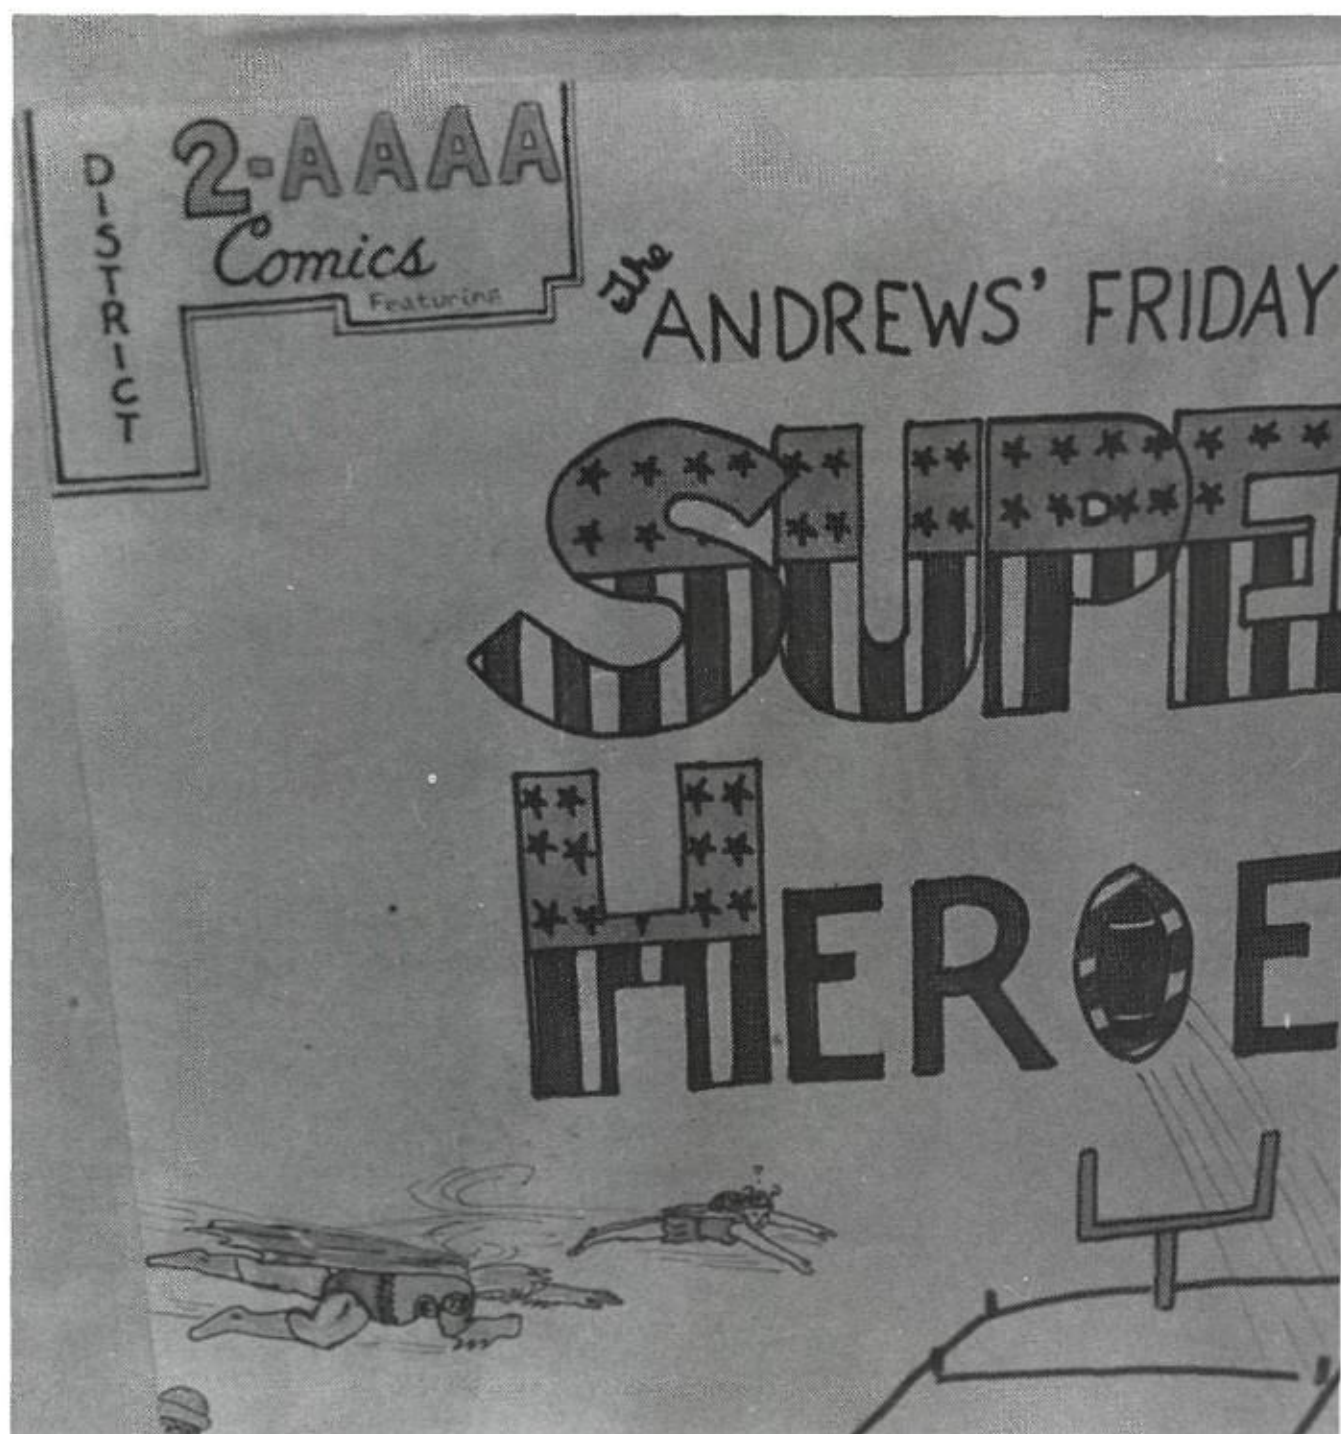 DISTRICT
2-AAAA
Comics
Featuring
The
ANDREWS' FRIDAY
SUPE
HEROE